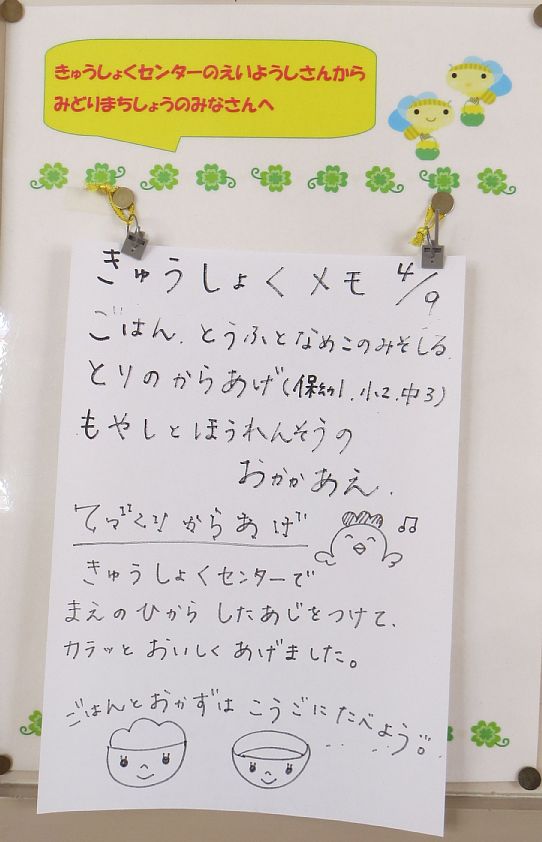 きゅうしょくセンターのえいようしさんから
みどりまちしょうのみなさんへ
きゅうしょくメモ 4/9
ごはん、とうふとなめこのみそしる、
とりのからあげ(保幼1、小2、中3)
もやしとほうれんそうの
おかかあえ、
てづくりからあげ
きゅうしょくセンターで
まえのひから したあじをつけて、
カラッと おいしく あげました。
ごはんとおかずは こうごに たべよう。